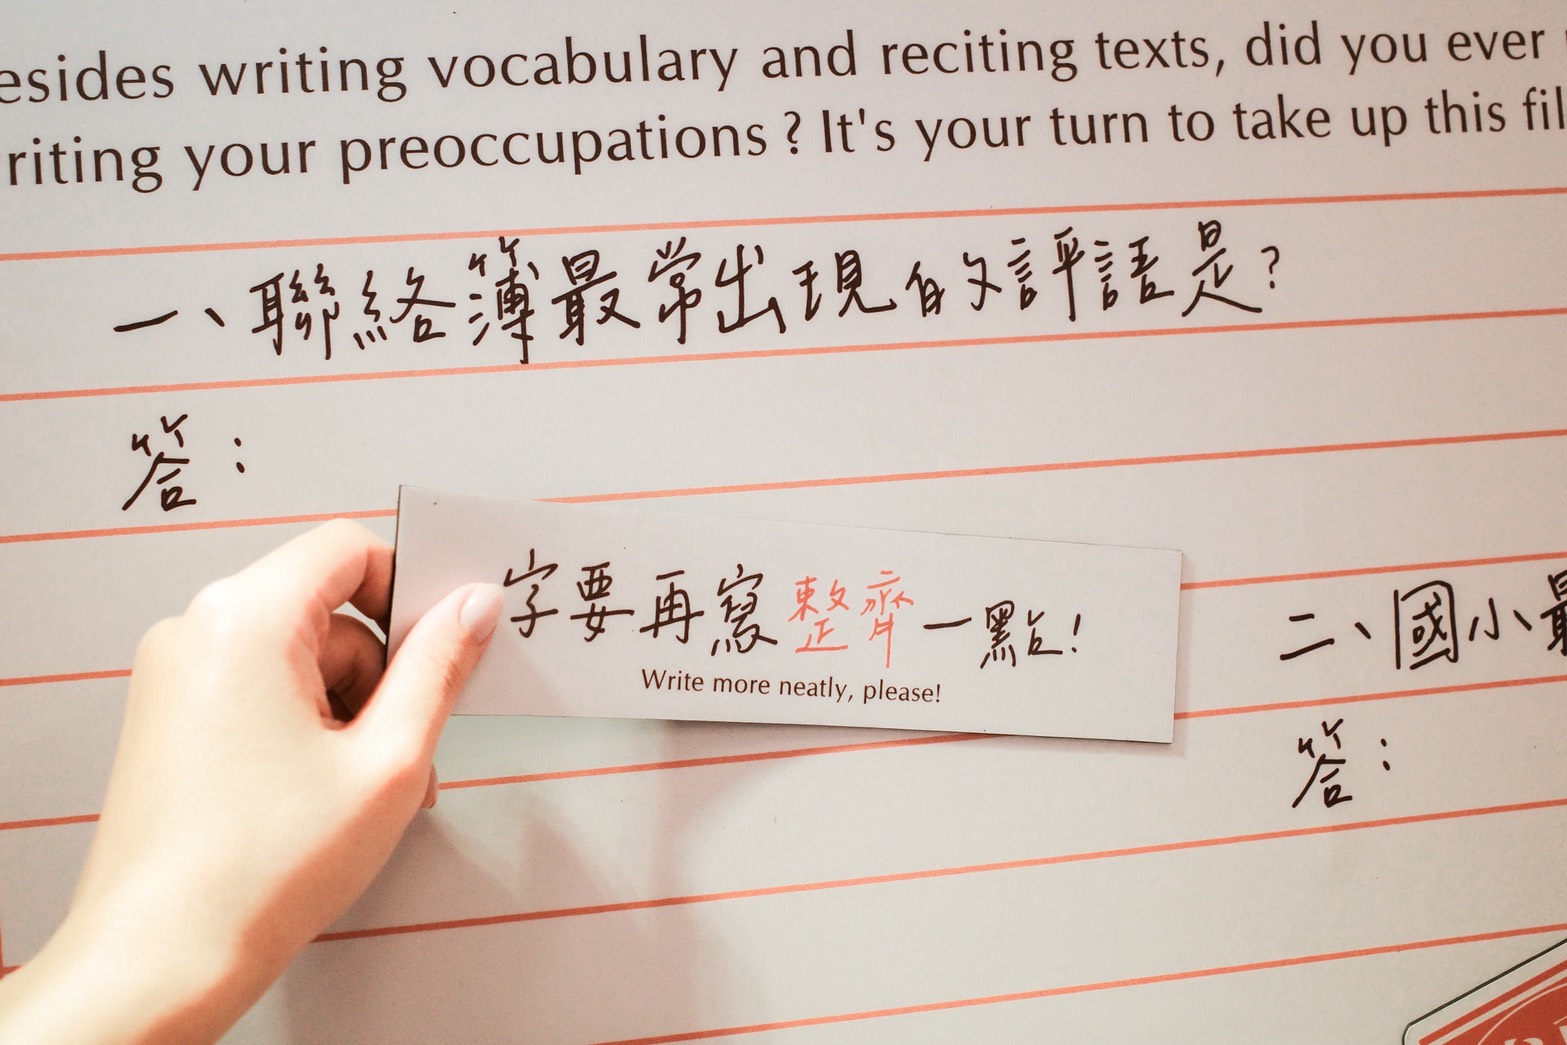 esides writing vocabulary and reciting texts, did you ever
riting your preoccupations? It's your turn to take up this fil
一、聯絡簿最常出現的評語是?
答：
字要再寫整齊一點!
Write more neatly, please!
二、國小最
答：